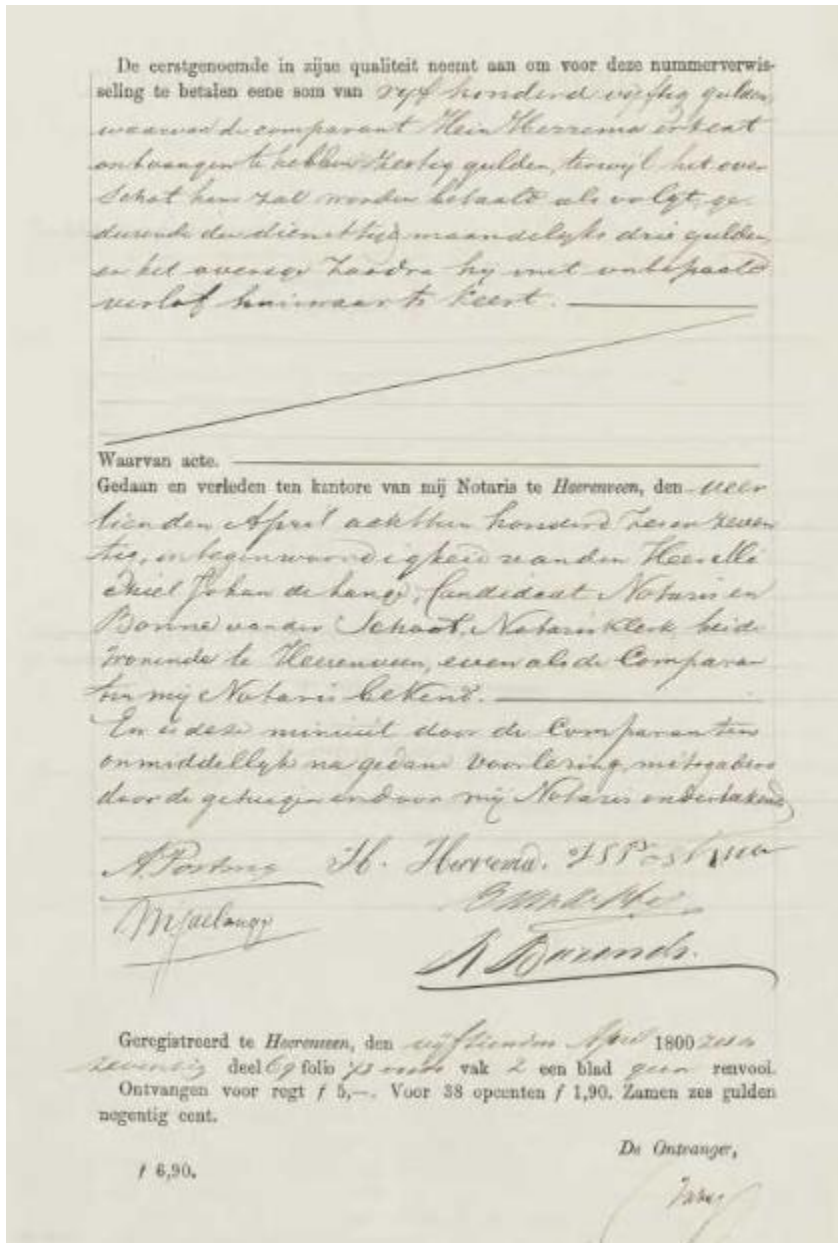 De eerstgenoemde in zijne qualiteit neemt aan om voor deze nummerverwis-
seling te betalen eene som van vyf honderd vyftig gulden,
waarvan de comparant Hein Herrema erkent
ontvangen te hebben zestig gulden, terwyl het over
schot hem zal worden betaald als volgt, ge-
durende den diensttyd maandelyks drie gulden
en het overige zoodra hy met onbepaald
verlof huiswaarts keert.
Waarvan acte.
Gedaan en verleden ten kantore van mij Notaris te Heerenveen, den veer
tienden April achttien honderd zes en zeven
tig, in tegenwoordigheid van den Heer
Johan de Lange, Candidaat Notaris en
Bonne van der Schoot, Notarisklerk, beide
wonende te Heerenveen, even als de Comparan
ten my Notaris bekend.
En is deze minuut door de Comparanten
onmiddellyk na gedane voorlezing, mitsgaders
door de getuigen en door my Notaris onderteekend,
A Posthuma H. Herrema.
MJdeLange
Geregistreerd te Heerenveen, den vyftienden April 1800 zes en
zeventig deel 69 folio vak 2 een blad geen renvooi.
Ontvangen voor regt f 5,—. Voor 38 opcenten f 1,90. Zamen zes gulden
negentig cent.
De Ontvanger,
f 6,90.